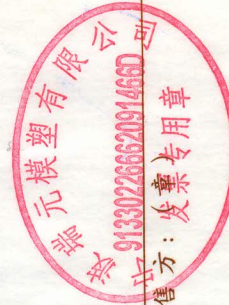 宁波瑞元模塑有限公司
91330226662091466D
发票专用章
售方：（章）